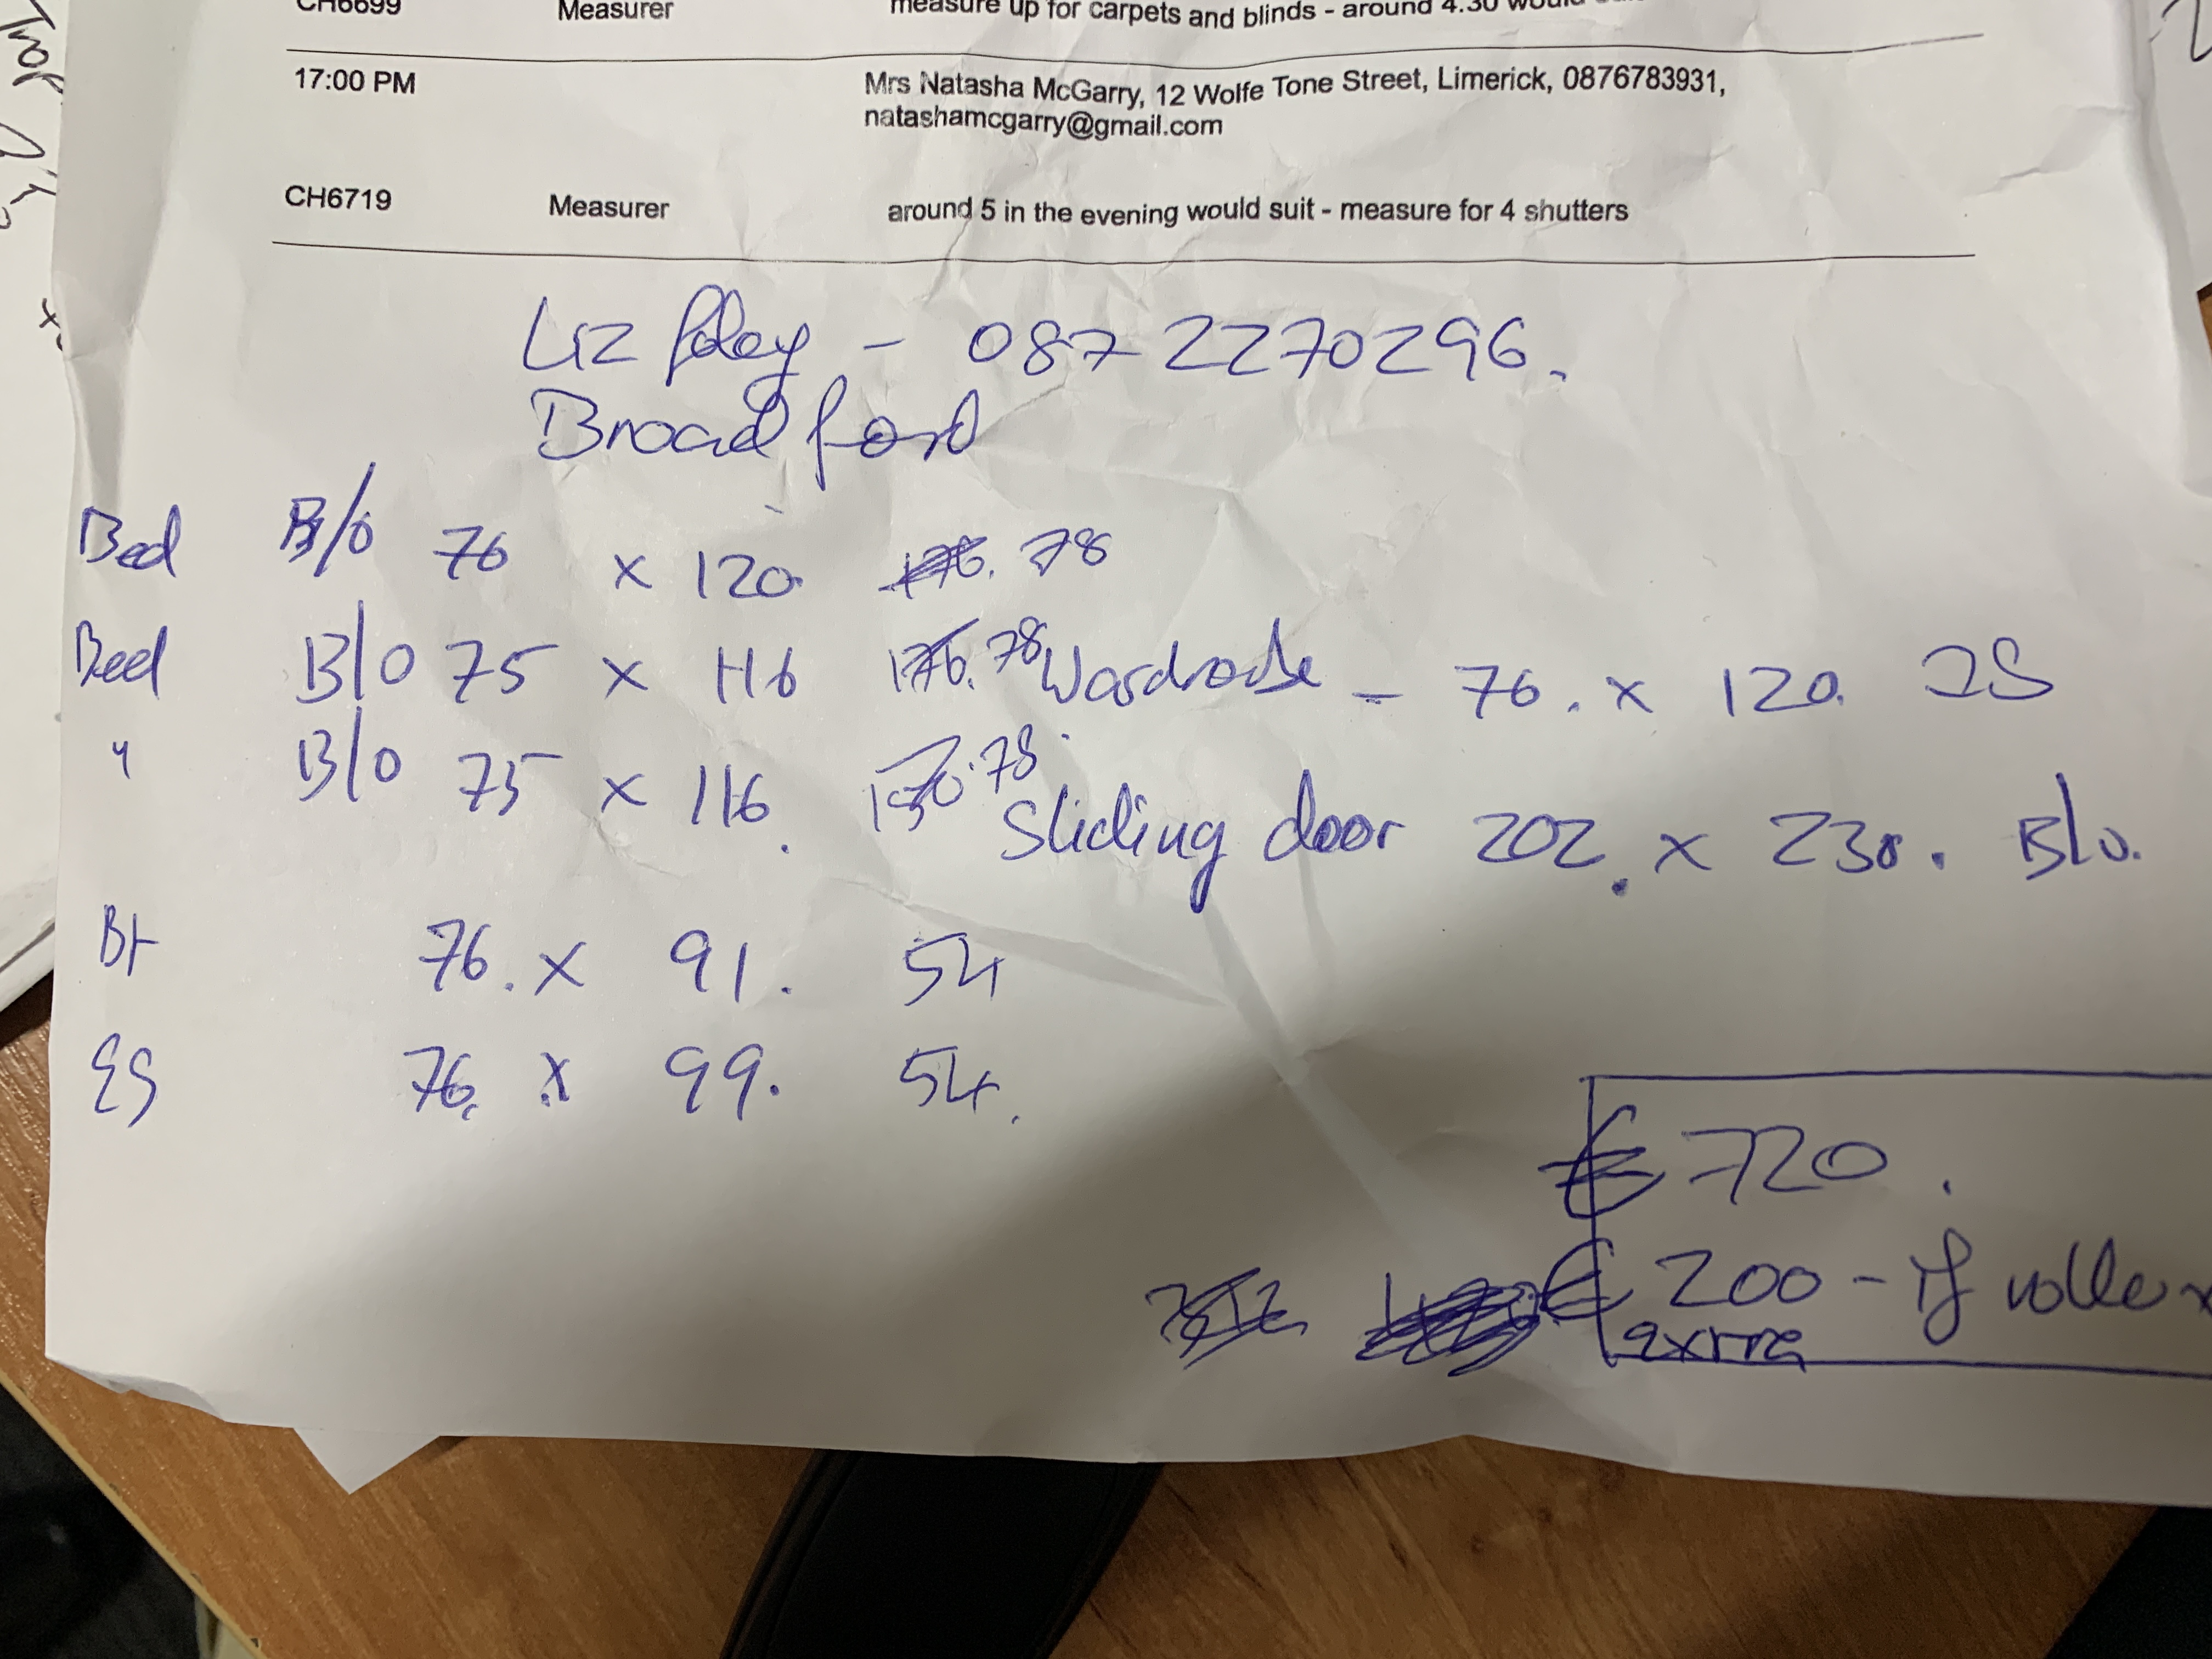 CH6699 Measurer measure up for carpets and blinds - around 4.30 would
17:00 PM Mrs Natasha McGarry, 12 Wolfe Tone Street, Limerick, 0876783931,
natashamcgarry@gmail.com
CH6719 Measurer around 5 in the evening would suit - measure for 4 shutters
Liz foley - 087 2270296.
Broadford
Bed B/O 76 x 120 78
Bed B/O 75 x 116 78 Wardrobe - 76. x 120.
" B/O 75 x 116. 78
Sliding door 202. x 230. B/O.
76. x 91. 54
76. x 99. 54.
€ 720.
€ 200 - if roller
extra